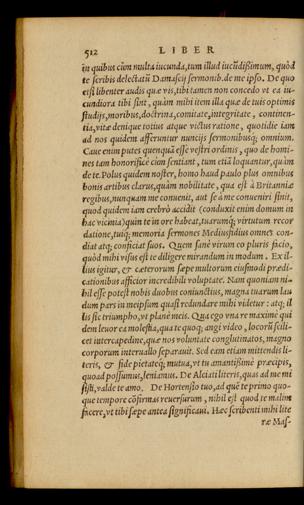 512 LIBER
in quibus cùm multa iucunda, tum illud iucũdißimum, quòd
te scribis delectatũ Damascij sermonib. de me ipso. De quo
etsi libenter audis quæ vis, tibi tamen non concedo vt ea iu-
cundiora tibi sint, quàm mihi item illa quæ de tuis optimis
studijs, moribus, doctrina, comitate, integritate, continen-
tia, vitæ deniq́ue totius atque victus ratione, quotidie iam
ad nos quidem afferuntur nuncijs sermonibusq́; omnium.
Caue enim putes quenquã esse vestri ordinis, quo de homi-
nes tam honorificè cùm sentiant, tum etiã loquantur, quàm
de te. Polus quidem noster, homo haud paulo plus omnibus
bonis artibus clarus, quàm nobilitate, qua est à Britanniæ
regibus, nunquam me conuenit, aut se à me conueniri sinit,
quod quidem iam crebrò accidit (conduxit enim domum in
hac vicinia) quin te in ore habeat, tuarumq́; virtutum recor
datione, tuiq́; memoria sermones Mediusfidius omnes con-
diat atq; conficiat suos. Quem sanè virum eo pluris facio,
quòd mihi visus est te diligere mirandum in modum. Ex il-
lius igitur, & cæterorum sæpe multorum eiusmodi prædi-
cationibus afficior incredibili voluptate. Nam quoniam ni-
hil esse potest nobis duobus coniunctius, magna tuarum lau
dum pars in meipsum quasi redundare mihi videtur: atq; il
lis sic triumpho, vt planè meis. Qua ego vna re maximè qui
dem leuor ea molestia, qua te quoq; angi video, locorũ scili-
cet intercapedine, quæ nos voluntate conglutinatos, magno
corporum interuallo separauit. Sed eam etiam mittendis li-
teris, & fide pietateq́; mutua, vt tu amantißimè præcipis,
quoad poßumus, leniamus. De Alciati literis, quas ad me mi
sisti, valde te amo. De Hortensio tuo, ad quẽ te primo quo-
que tempore cõfirmas reuersurum, nihil est quod te malim
facere, vt tibi sæpe antea significaui. Hæc scribenti mihi lite
ræ Mas-